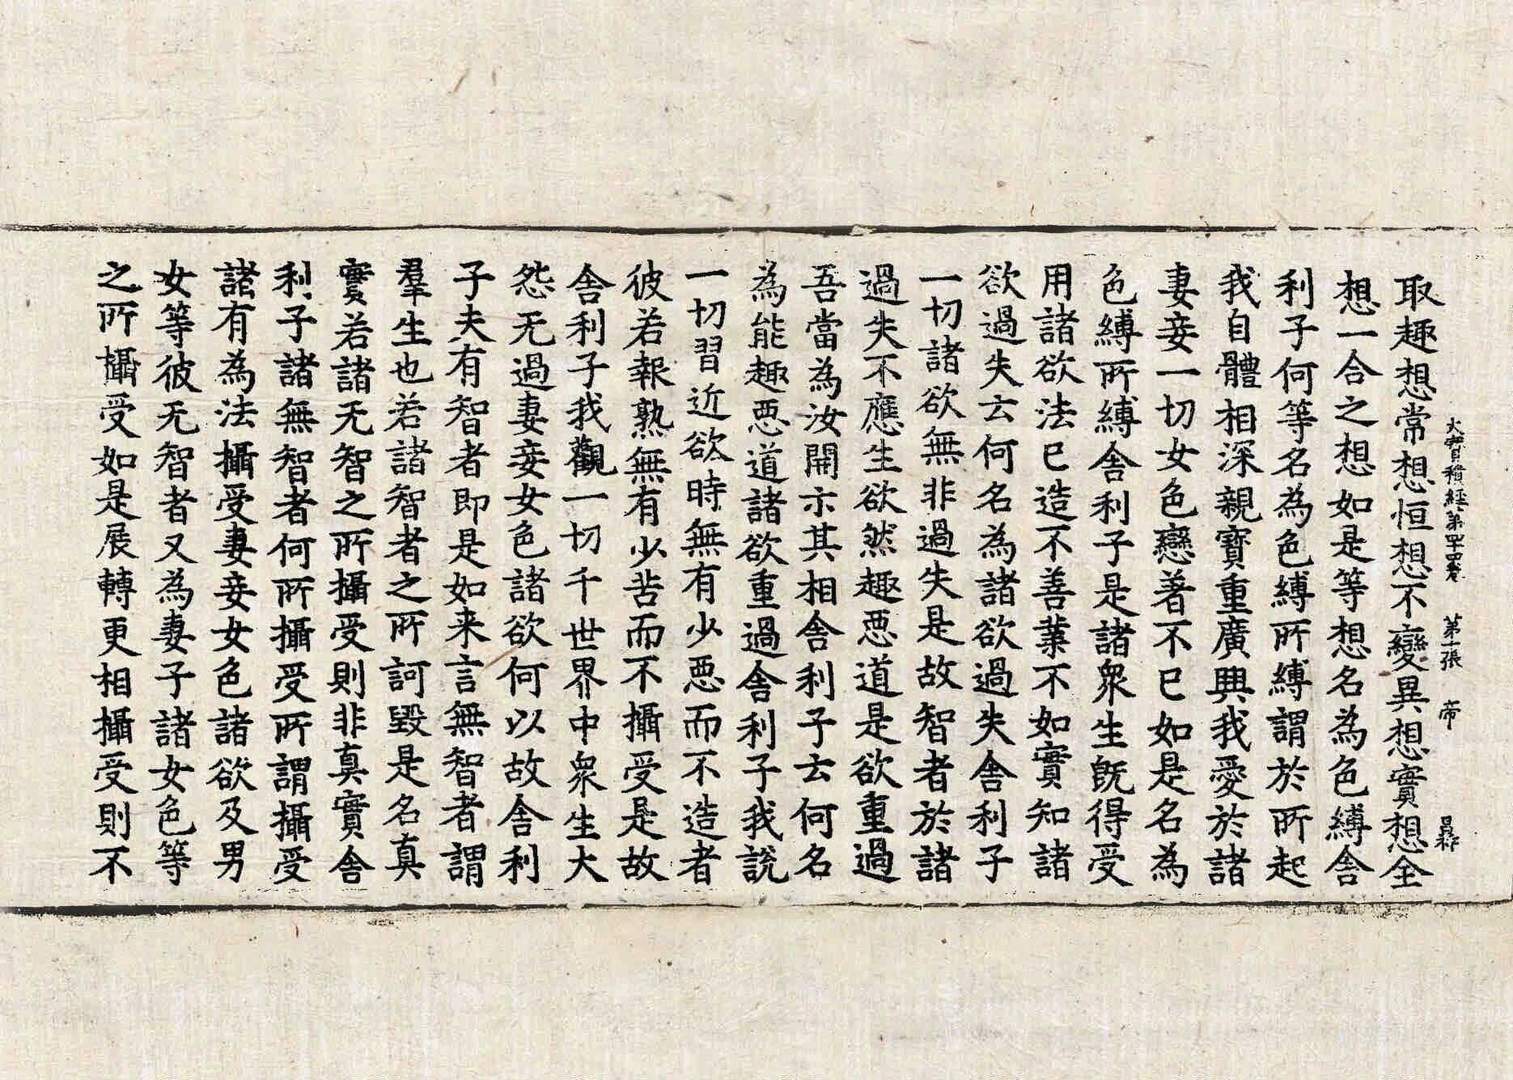 大寶積經第四十四卷 第張 帝
取趣想常想恒想不變異想實想全
想一合之想如是等想名為色縛舍
利子何等名為色縛所縛謂於所起
我自體相深親寶重廣興我愛於諸
妻妾一切女色戀著不已如是名為
色縛所縛舍利子是諸衆生旣得受
用諸欲法已造不善業不如實知諸
欲過失云何名為諸欲過失舍利子
一切諸欲無非過失是故智者於諸
過失不應生欲然趣惡道是欲重過
吾當為汝開示其相舍利子云何名
為能趣惡道諸欲重過舍利子我說
一切習近欲時無有少惡而不造者
彼若報熟無有少苦而不攝受是故
舍利子我觀一切千世界中衆生大
怨无過妻妾女色諸欲何以故舍利
子夫有智者即是如来言無智者謂
羣生也若諸智者之所訶毀是名真
實若諸无智之所攝受則非真實舍
利子諸無智者何所攝受所謂攝受
諸有為法攝受妻妾女色諸欲及男
女等彼无智者又為妻子諸女色等
之所攝受如是展轉更相攝受則不